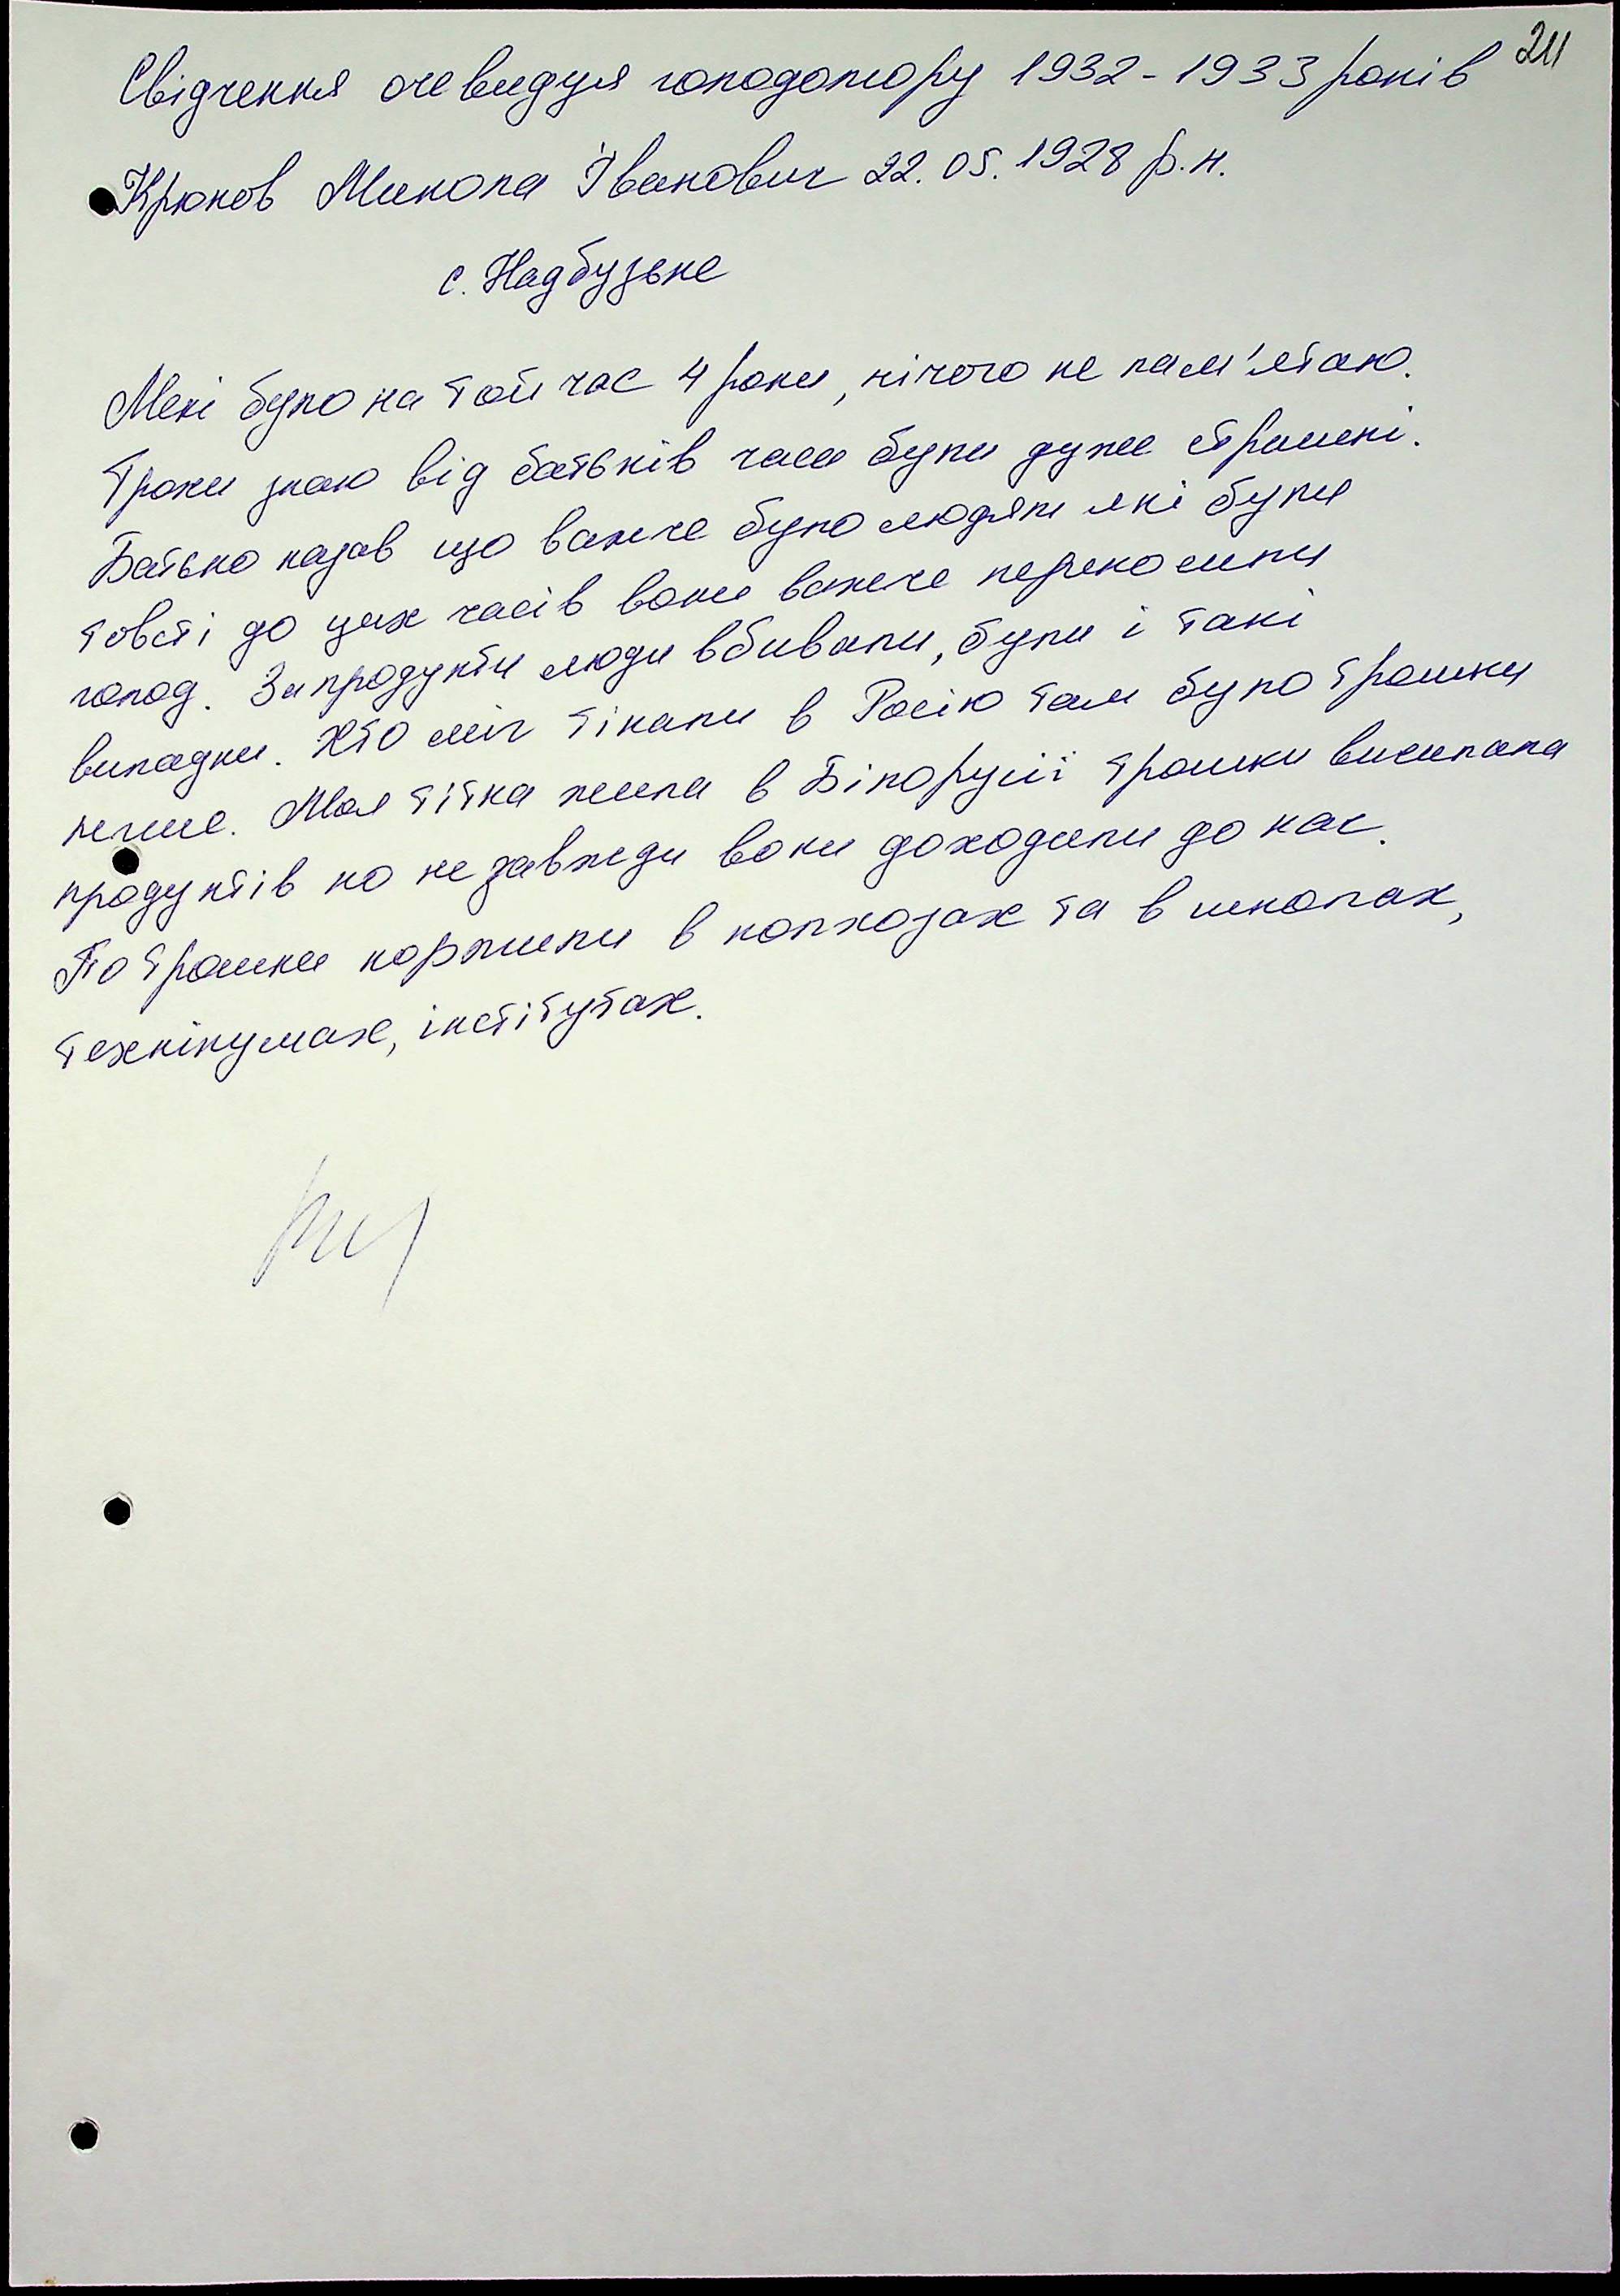 211
Свідчення очевидця голодомору 1932-1933 років
Крюков Микола Іванович 22.05.1928 р.н.
с. Надбузьке
Мені було на той час 4 роки, нічого не пам'ятаю.
Трохи знаю від батьків часи були дуже страшні.
Батько казав що важче було людям які були
товсті до цих часів вони важче переносили
голод. За продукти люди вбивали, були і такі
випадки. Хто міг тікали в Росію там було трошки
легше. Моя тітка жила в Білорусії трошки висилала
продуктів но не завжди вони доходили до нас.
По трошки кормили в колхозах та в школах,
технікумах, інстітутах.